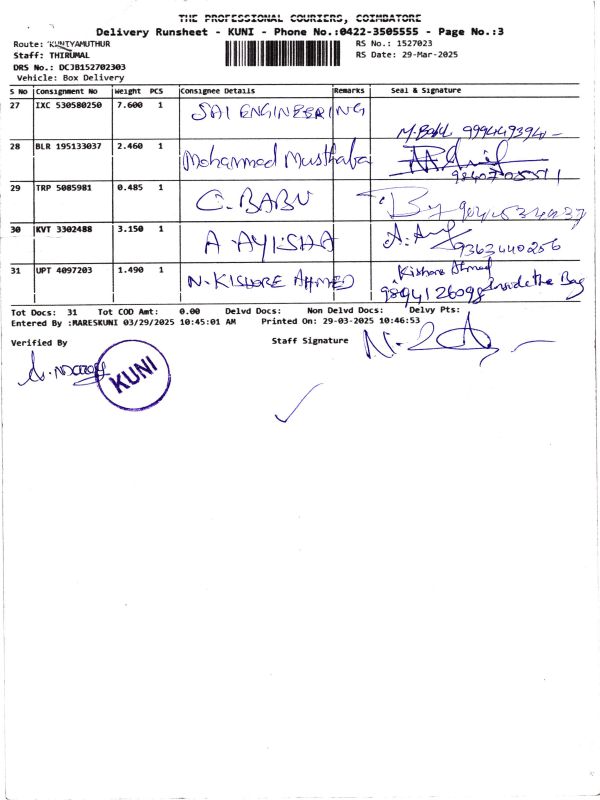 THE PROFESSIONAL COURIERS, COIMBATORE
Delivery Runsheet - KUNI - Phone No.:0422-3505555 - Page No.:3
Route: KUNIYAMUTHUR
RS No.: 1527023
Staff: THIRUMAL
RS Date: 29-Mar-2025
DRS No.: DCJB152702303
Vehicle: Box Delivery
S No Consignment No Weight PCS Consignee Details Remarks Seal & Signature
27 IXC 530580250 7.600 1 SAI ENGINEERING
28 BLR 195133037 2.460 1 Mohammed Musthaba
29 TRP 5085981 0.485 1 C. BABU
30 KVT 3302488 3.150 1 A. AYISHA 9363440256
31 UPT 4097203 1.490 1 N. KISHORE AHMED Kishore Ahmed
9894126098 Inside the Bag
Tot Docs: 31 Tot COD Amt: 0.00 Delvd Docs: Non Delvd Docs: Delvy Pts:
Entered By :MARESKUNI 03/29/2025 10:45:01 AM Printed On: 29-03-2025 10:46:53
Verified By
Staff Signature
KUNI